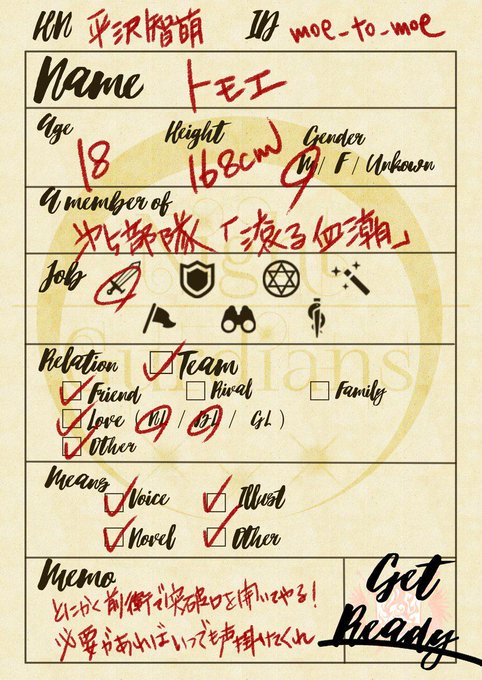 HN 平沢智萌 ID moe_to_moe
Name トモエ
Age 18 Height 168cm Gender M / F / Unkown
A member of
北部隊「滾る血潮」
Job
Relation Team
Friend Rival Family
Love ( NL / BL / GL )
Other
Means Voice Illust
Novel Other
Memo
とにかく前衛で突破口を開いてやる!
必要があればいつでも声掛けてくれ
Get
Ready